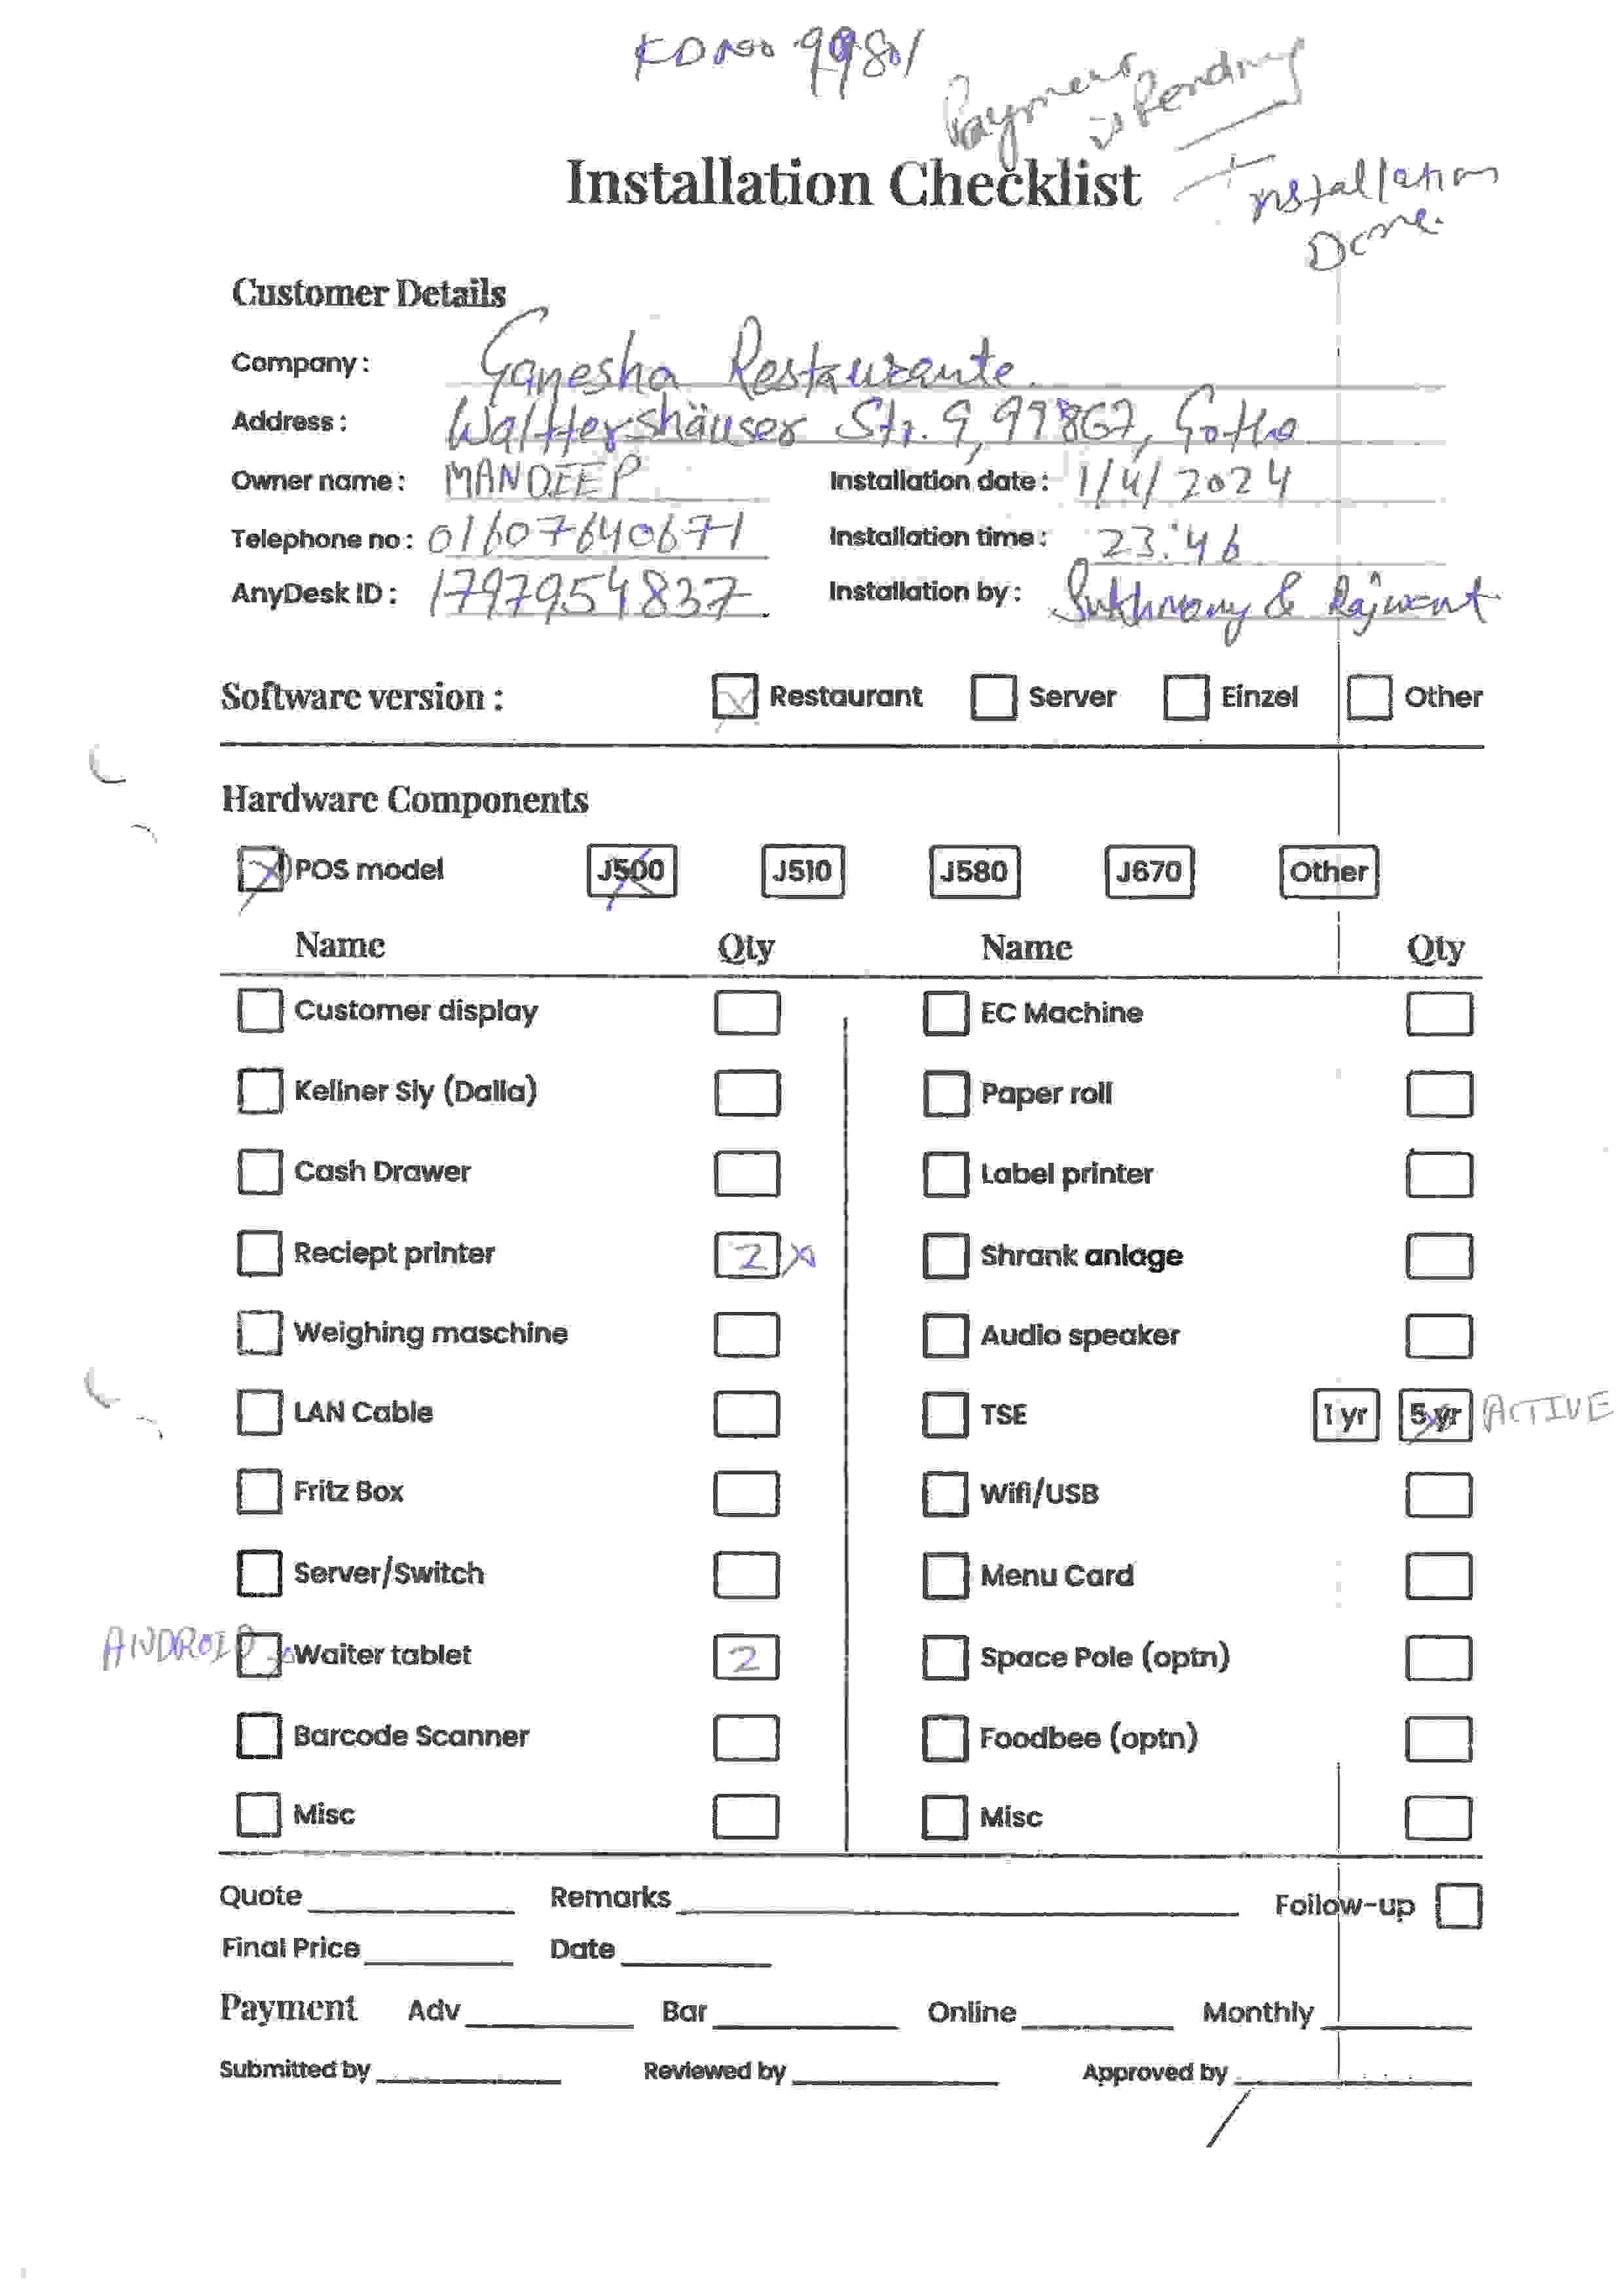 KD no 99801
Payment is Pending
Installation Checklist
+ installation
Done.
Customer Details
Company : Ganesha Restaurante.
Address : Walthershäuser Str. 9, 99867, Gotha
Owner name : MANDEEP Installation date : 1/4/2024
Telephone no : 01607640671 Installation time : 23:46
AnyDesk ID : 1797954837 Installation by : Sukhmany & Rajwant
Software version : Restaurant Server Einzel Other
Hardware Components
POS model J500 J510 J580 J670 Other
Name Qty Name Qty
Customer display EC Machine
Kellner Sly (Dalla) Paper roll
Cash Drawer Label printer
Reciept printer 2 x Shrank anlage
Weighing maschine Audio speaker
LAN Cable TSE 1 yr 5 yr ACTIVE
Fritz Box Wifi/USB
Server/Switch Menu Card
ANDROID Waiter tablet 2 Space Pole (optn)
Barcode Scanner Foodbee (optn)
Misc Misc
Quote Remarks Follow-up
Final Price Date
Payment Adv Bar Online Monthly
Submitted by Reviewed by Approved by